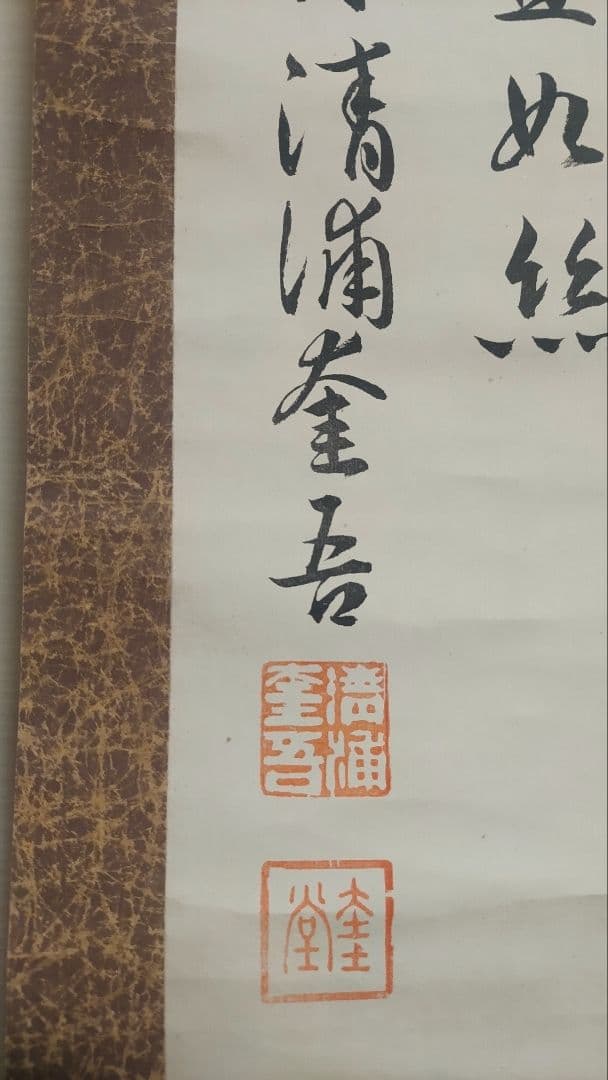 如絲
清浦奎吾
清浦奎吾
奎堂